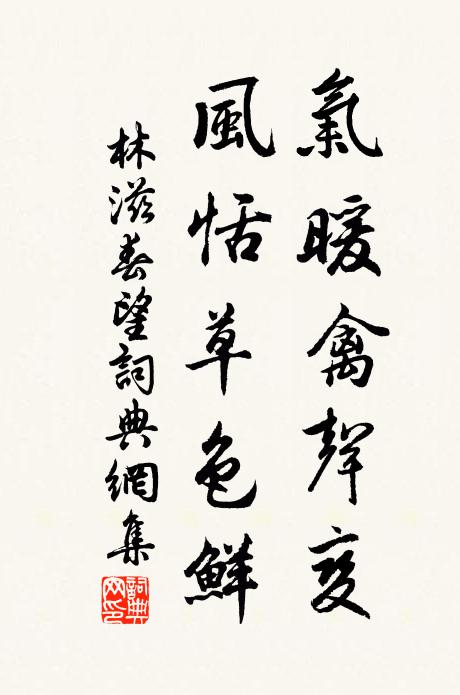 氣暖禽聲変
風恬草色鮮
林滋春望詞典網集
詞典网印